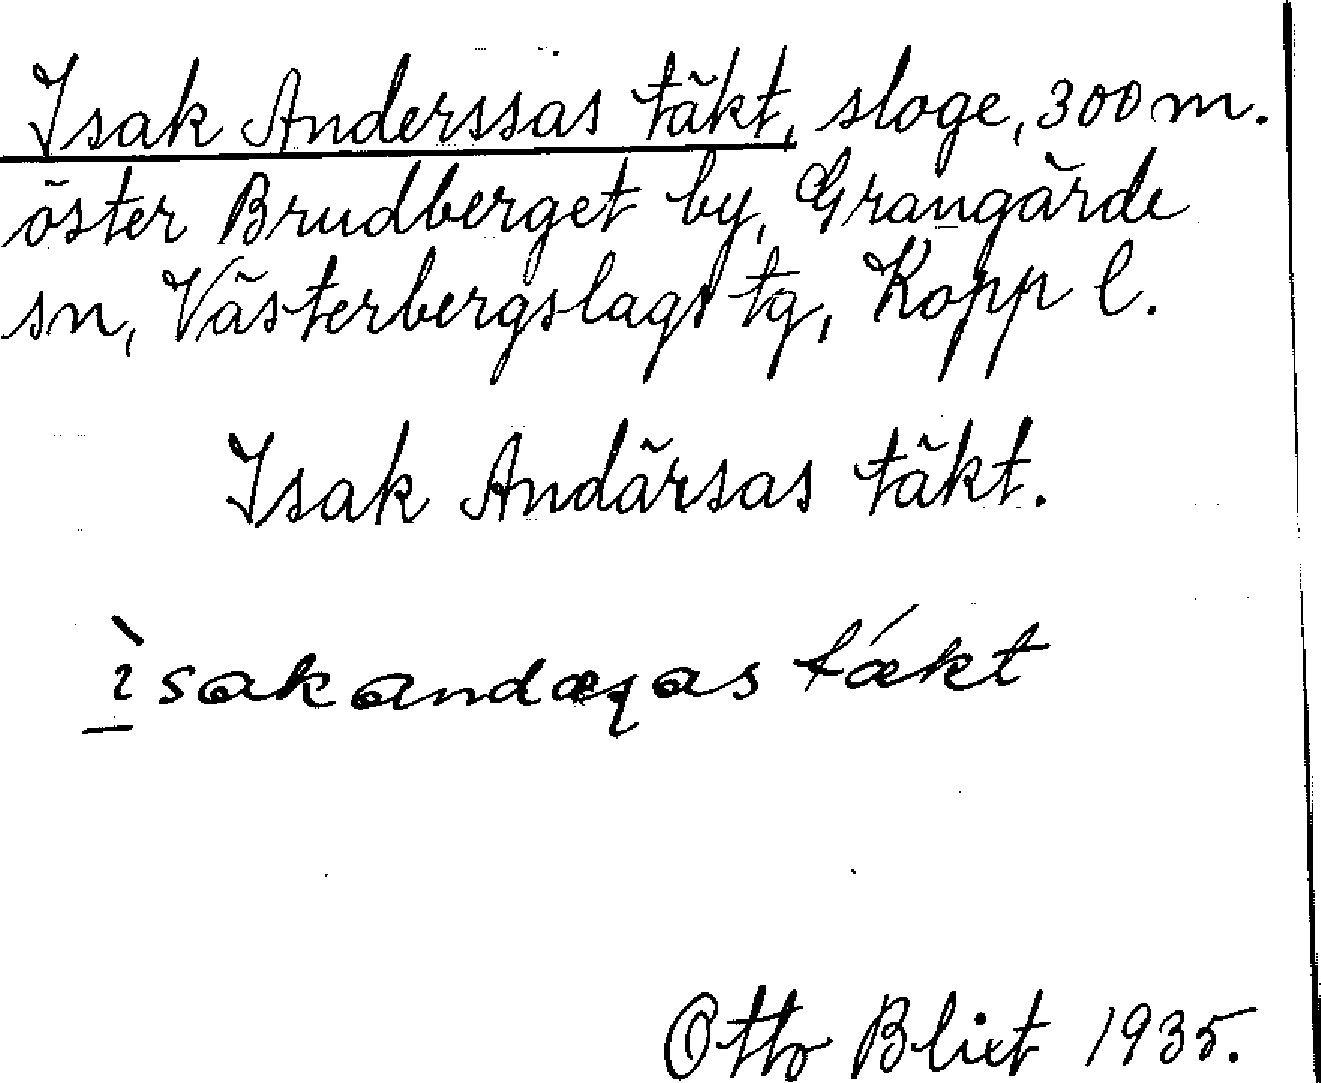 Isak Anderssas täkt, sloge, 300 m.
öster Brudberget by, Grangärde
sn, Västerbergslags tg, Kopp l.
Isak Andärsas täkt.
ìsakandæʂas tǽkt
Otto Blixt 1935.